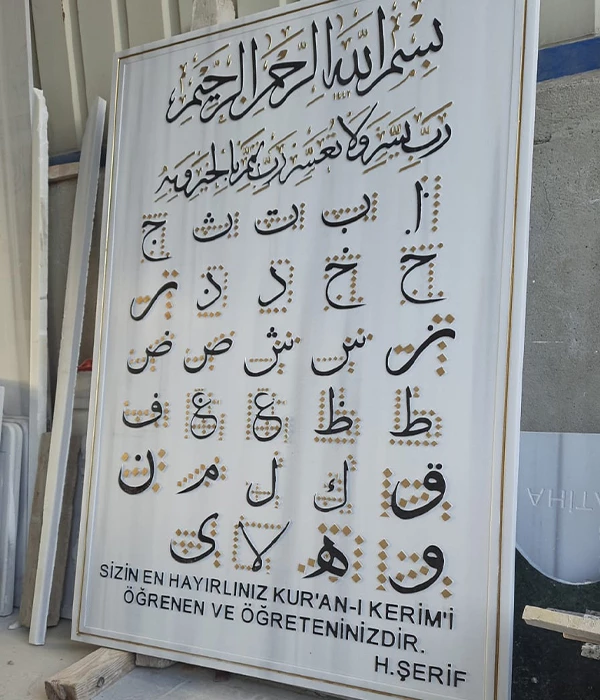 بسم الله الرحمن الرحيم
١٤٤٢
رب يسر ولا تعسر رب تمم بالخير وبه
ا ب ت ث ج
ح خ د ذ ر
ز س ش ص ض
ط ظ ع غ ف
ق ك ل م ن
و ه لا ى
SİZİN EN HAYIRLINIZ KUR'AN-I KERİM'İ
ÖĞRENEN VE ÖĞRETENİNİZDİR.
H.ŞERİF